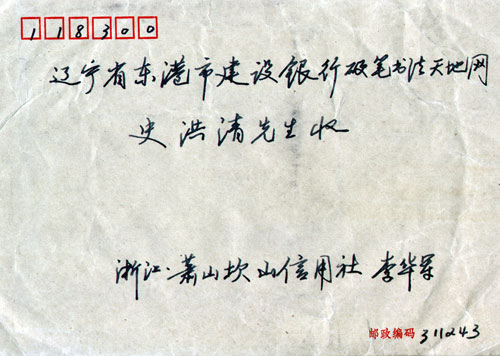 118300
辽宁省东港市建设银行硬笔书法天地网
史洪清先生收
浙江.萧山坎山信用社 李华军
邮政编码 311243